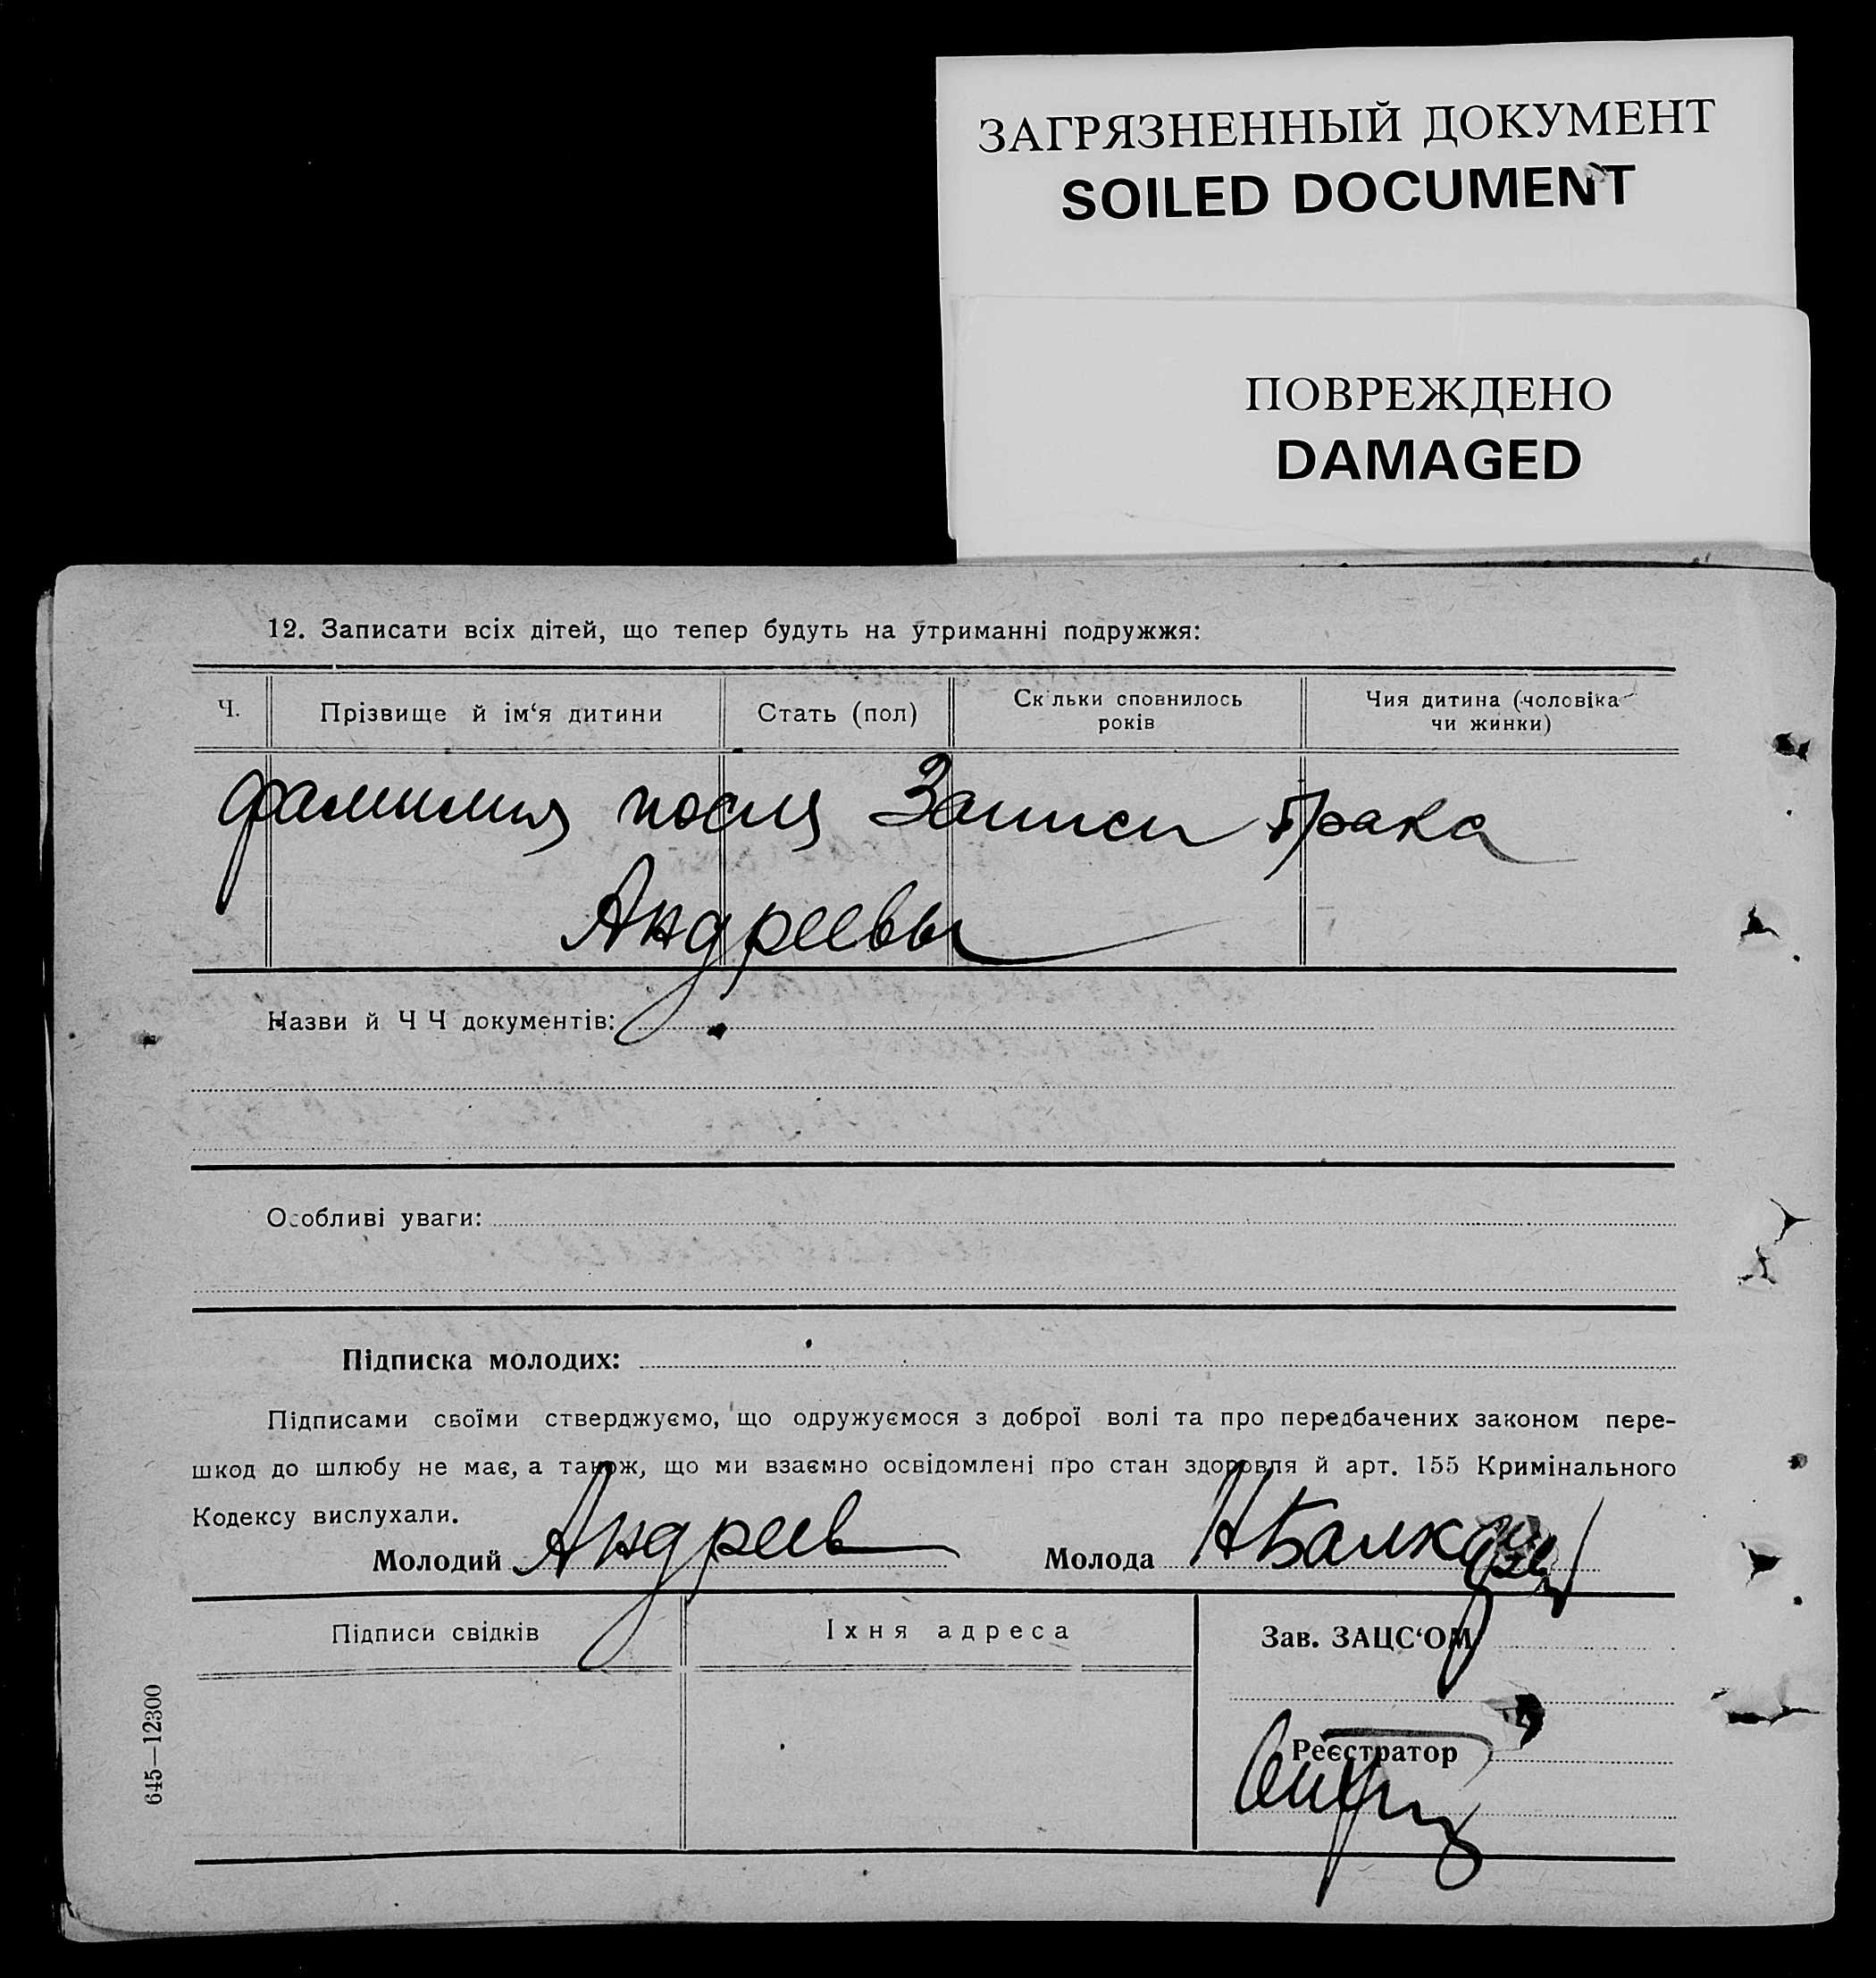 ЗАГРЯЗНЕННЫЙ ДОКУМЕНТ
SOILED DOCUMENT
ПОВРЕЖДЕНО
DAMAGED
12. Записати всіх дітей, що тепер будуть на утриманні подружжя:
Ч.
Прізвище й ім‘я дитини
Стать (пол)
Ск льки сповнилось
років
Чия дитина (чоловіка
чи жинки)
фамилия после Записи брака
Андреевы
Назви й Ч Ч документів:
Особливі уваги:
Підписка молодих:
Підписами своїми стверджуємо, що одружуємося з доброї волі та про передбачених законом пере-
шкод до шлюбу не має, а також, що ми взаємно освідомлені про стан здоровля й арт. 155 Кримінального
Кодексу вислухали.
Молодий Андреев Молода
Підписи свідків
Їхня адреса
Зав. ЗАЦС‘ОМ
Реєстратор
645—12300